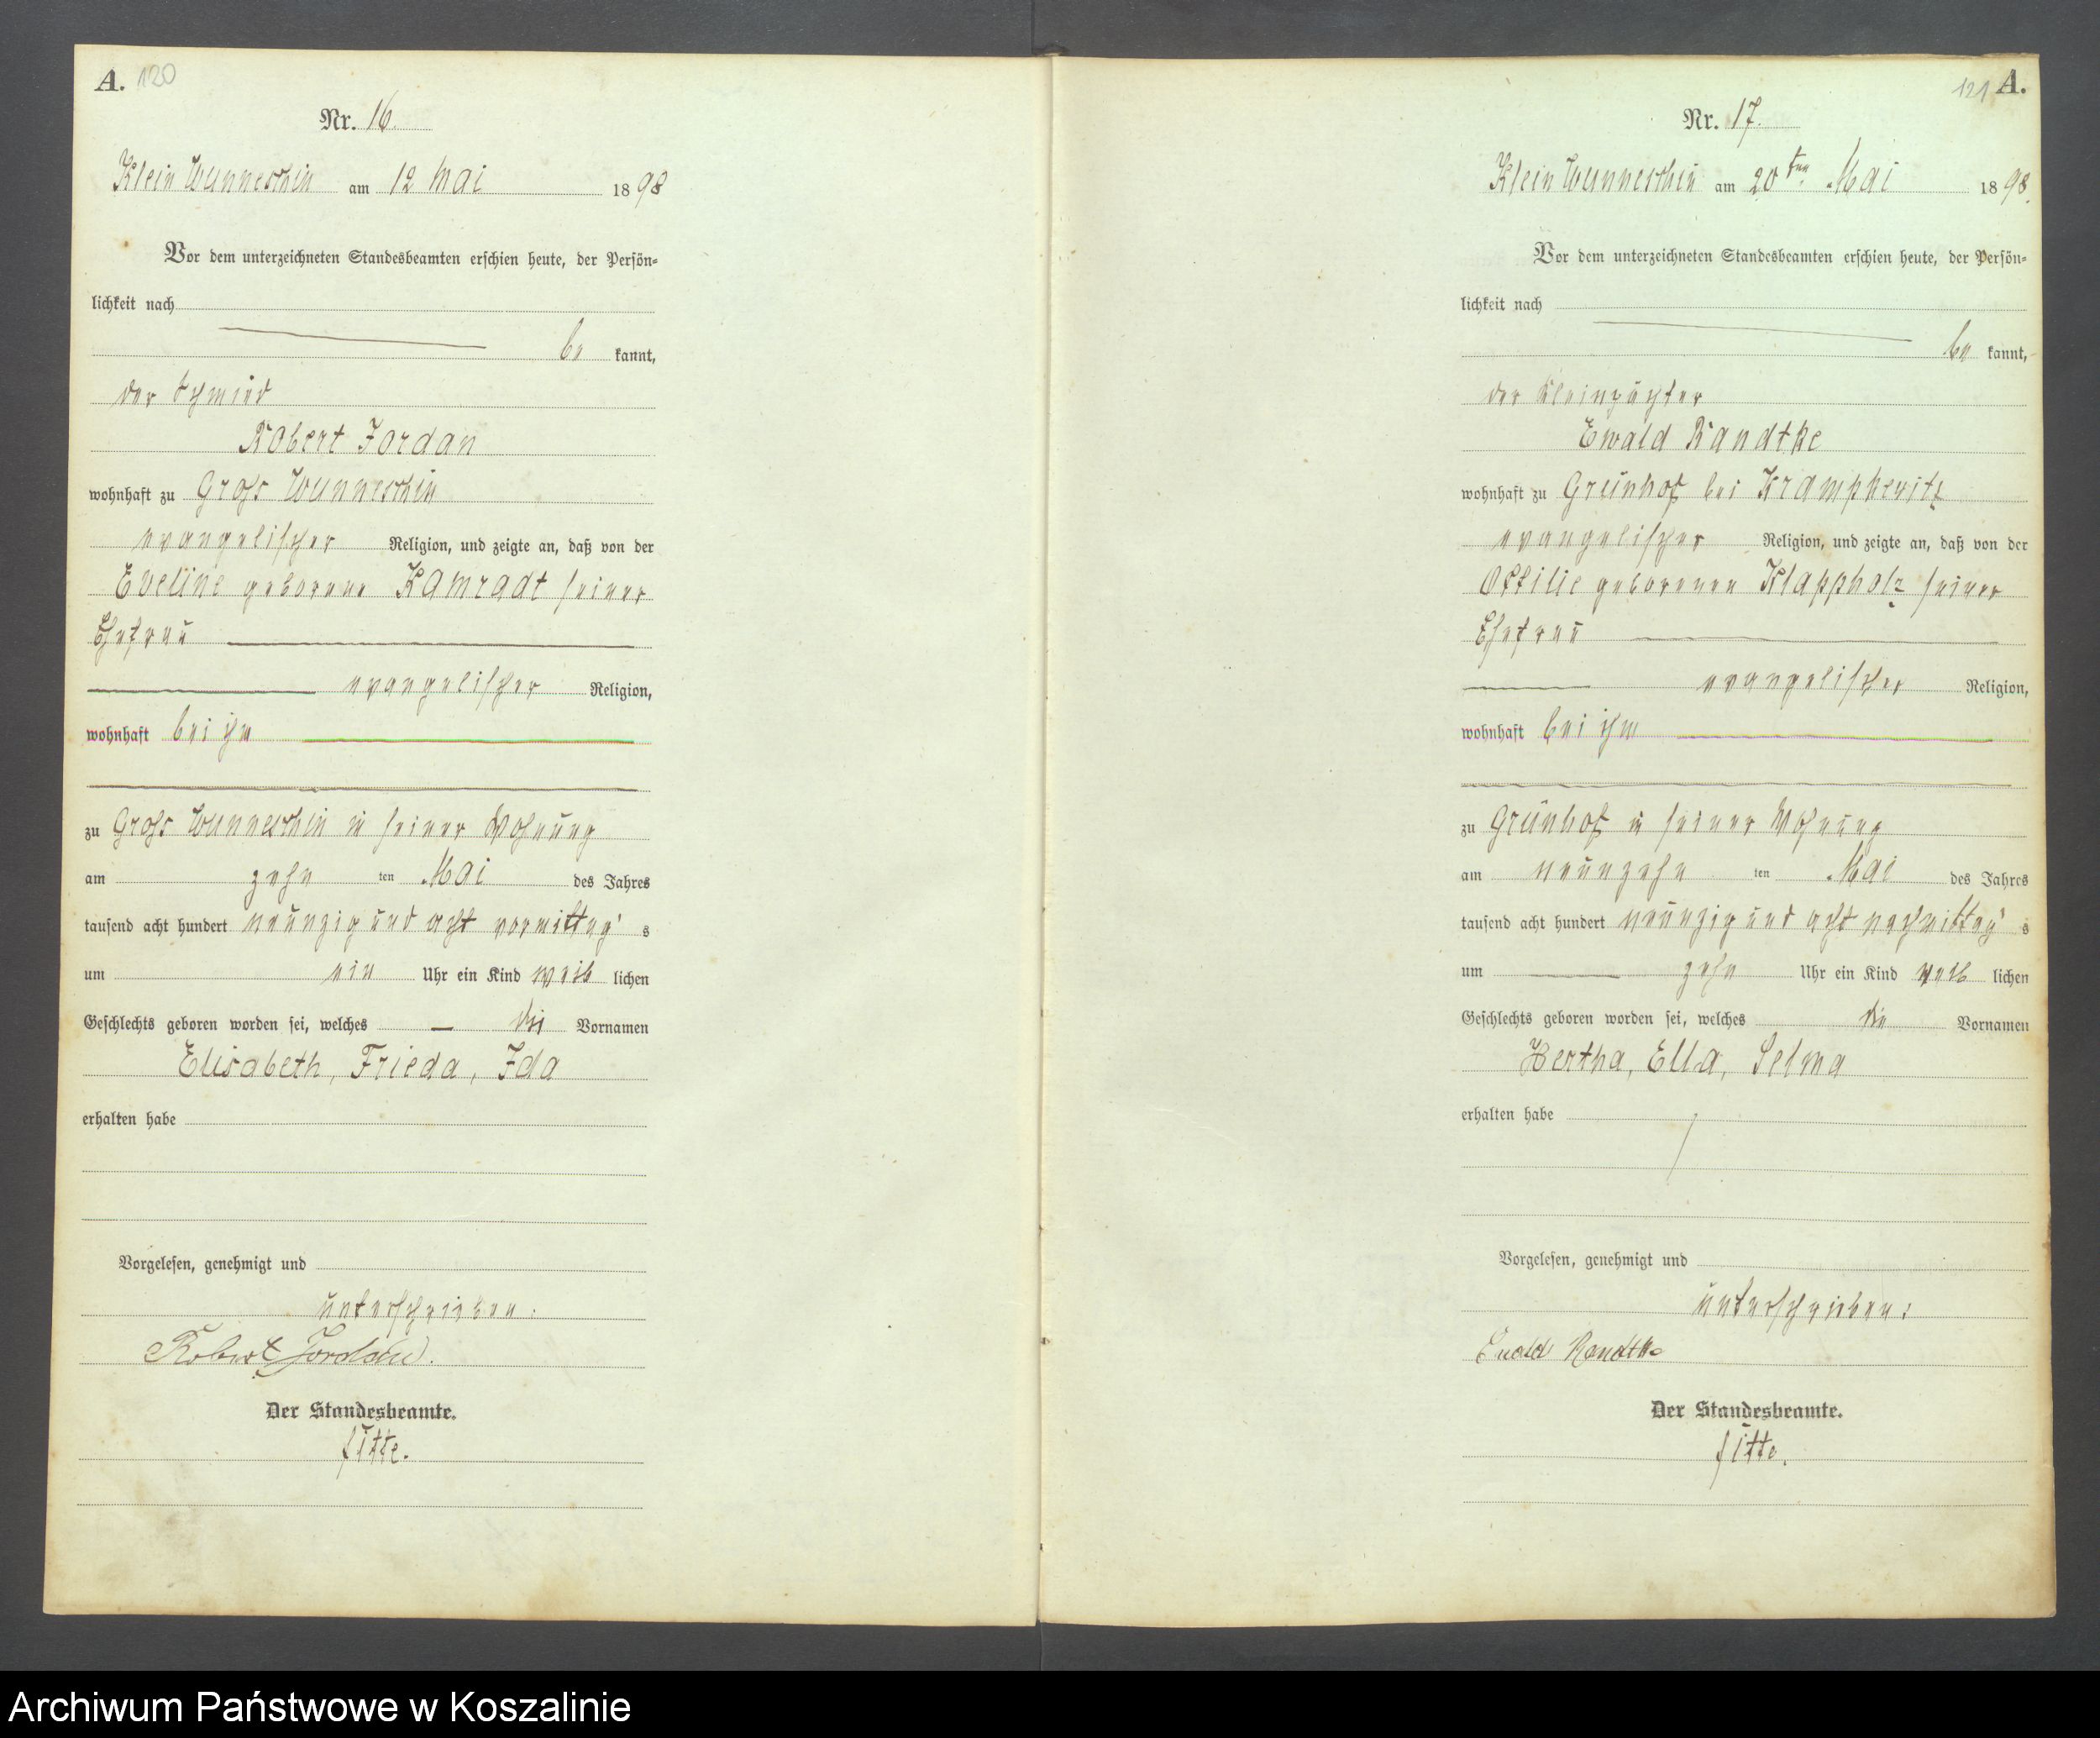 A. 120
Nr. 16.
Klein Wunneschin am 12 Mai 1898
Vor dem unterzeichneten Standesbeamten erschien heute, der Persön-
lichkeit nach
be kannt,
der Schmied
Robert Jordan
wohnhaft zu Gross Wunneschin
evangelischer Religion, und zeigte an, daß von der
Eveline geborene Kamradt seiner
Ehefrau
evangelischer Religion,
wohnhaft bei ihm
zu Gross Wunneschin in seiner Wohnung
am zehn ten Mai des Jahres
tausend acht hundert neunzig und acht vormittag's
um ein Uhr ein Kind weib lichen
Geschlechts geboren worden sei, welches die Vornamen
Elisabeth, Frieda, Ida
erhalten habe
Vorgelesen, genehmigt und
unterschrieben:
Robert Jordan.
Der Standesbeamte.
121 A.
Nr. 17.
Klein Wunneschin am 20ten Mai 1898.
Vor dem unterzeichneten Standesbeamten erschien heute, der Persön-
lichkeit nach
be kannt,
der Kleinpächter
Ewald Randtke
wohnhaft zu Grünhof bei Krampkewitz
evangelischer Religion, und zeigte an, daß von der
Ottilie geborenen Klappholz seiner
Ehefrau
evangelischer Religion,
wohnhaft bei ihm
zu Grünhof in seiner Wohnung
am neunzehn ten Mai des Jahres
tausend acht hundert neunzig und acht nachmittag's
um zehn Uhr ein Kind weib lichen
Geschlechts geboren worden sei, welches die Vornamen
Hertha, Ella, Selma
erhalten habe
Vorgelesen, genehmigt und
unterschrieben:
Ewald Randtke
Der Standesbeamte.
Archiwum Państwowe w Koszalinie